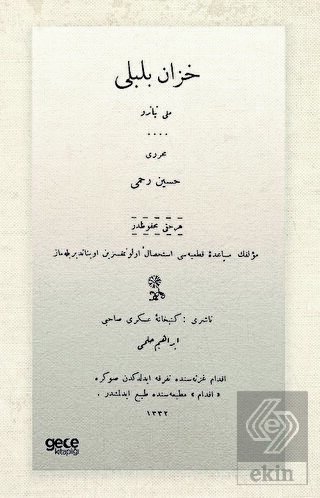 خزان بلبلی
ملی تياترو
....
محرری
حسین رحمی
هر حقی محفوظدر
مؤلفك مساعدهٔ قطعیه‌سی استحصال اولونمقسزین اویناندیریله‌ماز
ناشری : كتبخانهٔ عسكری صاحبی
ابراهیم حلمی
اقدام غزته‌سنده تفرقه ایدلدكدن صوكره
« اقدام » مطبعه‌سنده طبع ایدلمشدر .
١٣٣٢
gece
kitaplığı
ekin